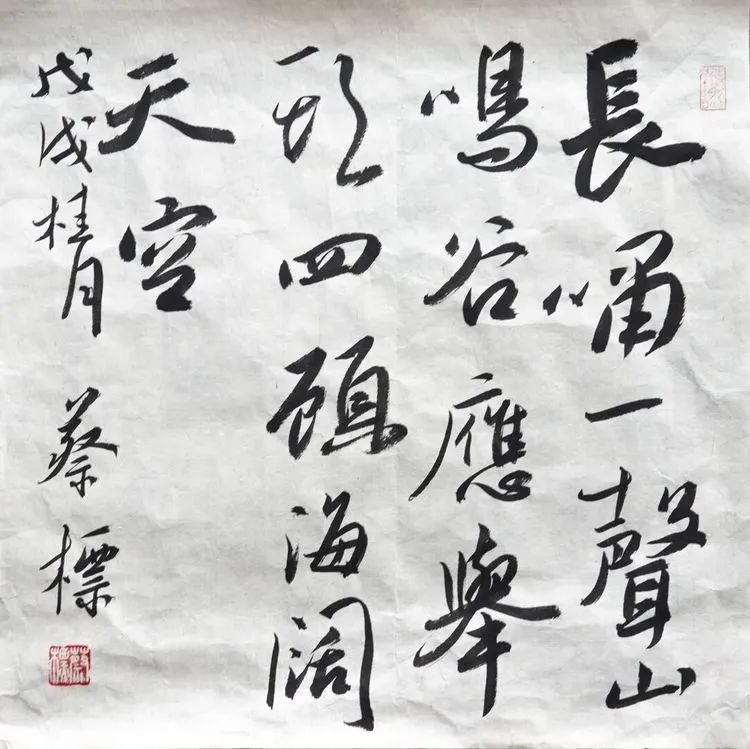 長嘯一聲山
鳴谷應舉
頭四顧海闊
天空
戊戌桂月 蔡標
蔡標